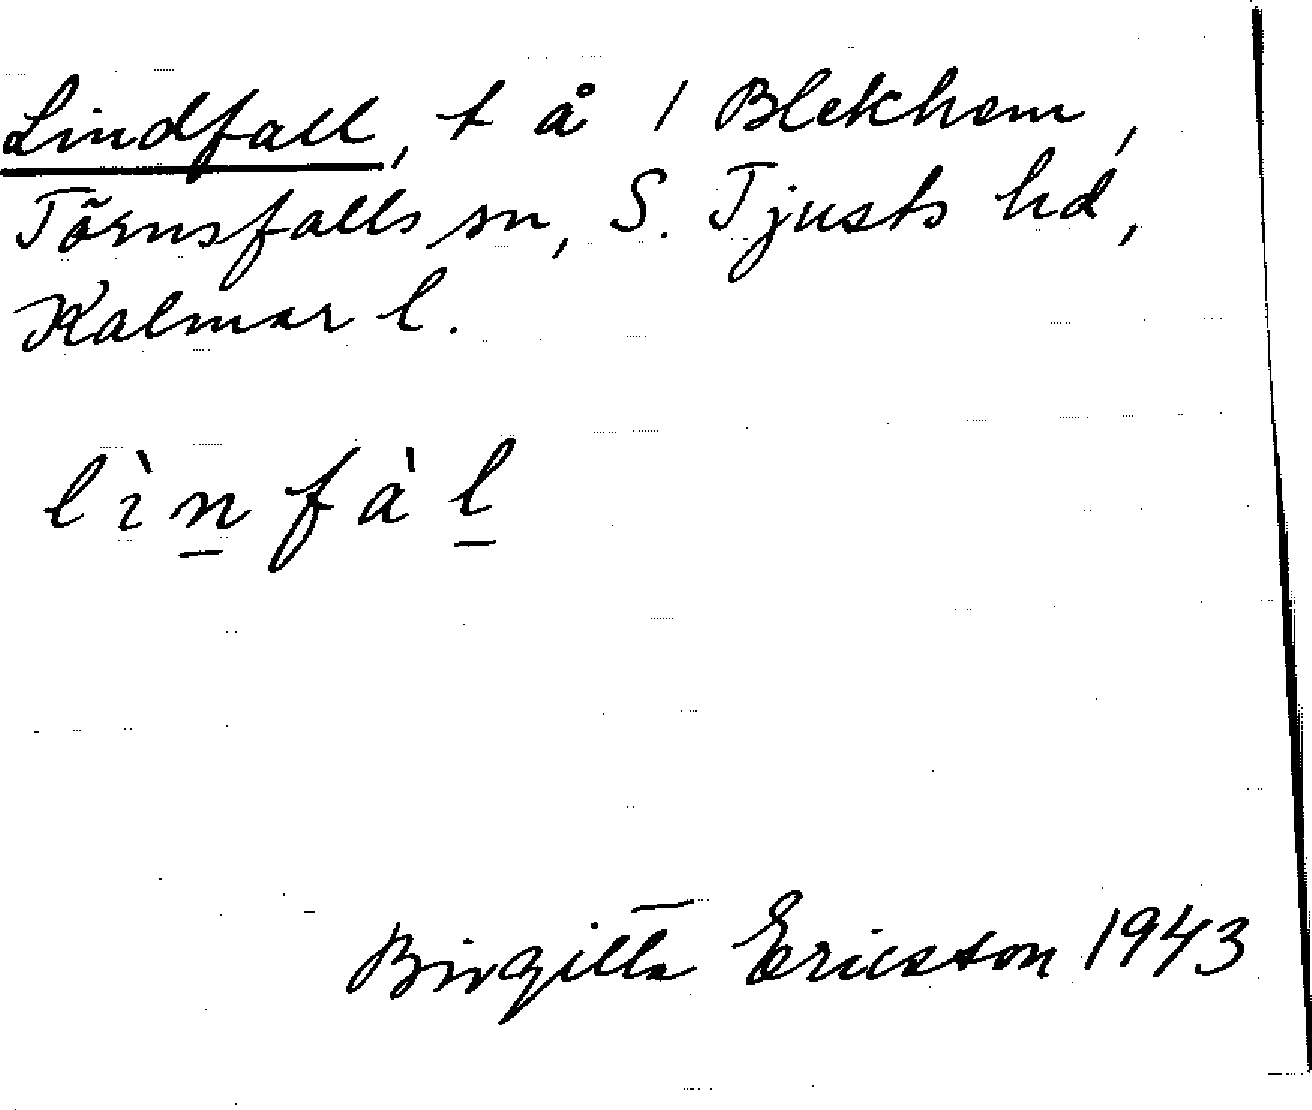 Lindfall, t å 1 Blekhem,
Törnsfalls sn, S. Tjusts hd,
Kalmar l.
lìn̲ fàl̲
Birgitta Ericsson 1943